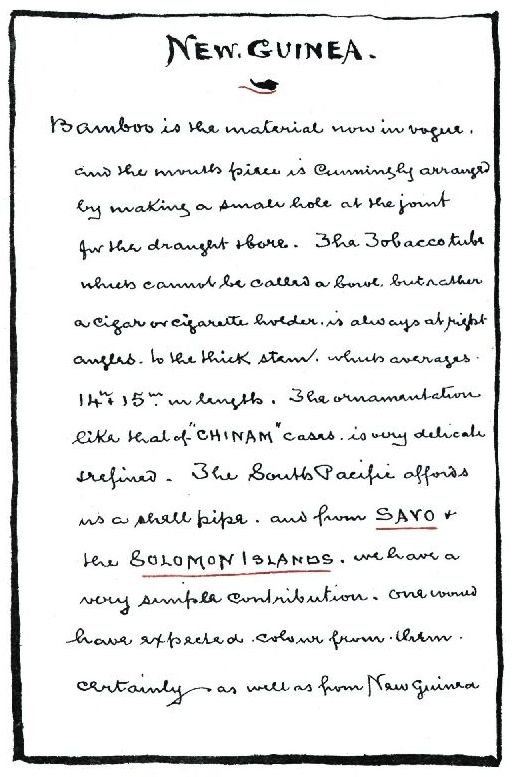 NEW. GUINEA.
Bamboo is the material now in vogue.
and the mouth piece is cunningly arranged
by making a small hole at the joint
for the draught + bore. The Tobacco tube
which cannot be called a bowl, but rather
a cigar or cigarette holder, is always at right
angles. to the thick stem. which averages.
14in + 15in in length. The ornamentation
like that of "CHINAM" cases. is very delicate
+ refined. The South Pacific affords
us a shell pipe. and from SAVO +
the SOLOMON ISLANDS. we have a
very simple contribution. one would
have expected. colour from. them.
certainly as well as from New Guinea